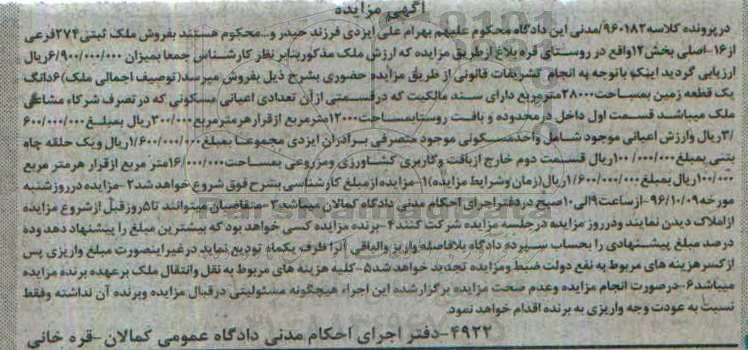 آگهی مزایده
در پرونده کلاسه ۹۶۰۱۸۲/مدنی این دادگاه محکوم علیهم بهرام علی ایزدی فرزند حیدر و...محکوم هستند بفروش ملک ثبتی ۲۷۴فرعی
از ۱۶-اصلی بخش ۱۲واقع در روستای قره بلاغ ازطریق مزایده که ارزش ملک مذکوربنابر نظر کارشناس جمعا بمیزان ۶/۹۰۰/۰۰۰/۰۰۰ریال
ارزیابی گردید اینکو باتوجه به انجام تشریفات قانونی از طریق مزایده حضوری بشرح ذیل بفروش میرسد(توصیف اجمالی ملک)۶دانگ
یک قطعه زمین بمساحت۲۸۰۰۰مترمربع دارای سند مالکیت که درقسمتی ازآن تعدادی اعیانی مسکونی که در تصرف شرکاء مشاعی
ملک میباشد قسمت اول داخل درمحدوده و بافت روستابمساحت۱۲۰۰۰مترمربع ازقرارهرمترمربع۳۰۰/۰۰۰ریال بمبلغ۶۰۰/۰۰۰/۰۰۰
/۳ریال وارزش اعیانی موجود شامل واحدمسکونی موجود متصرفی برادران ایزدی مجموعا بمبلغ۱/۶۰۰/۰۰۰/۰۰۰ریال ویک حلقه چاه
بتنی بمبلغ۱۰۰/۰۰۰/۰۰۰ریال قسمت دوم خارج ازبافت وکاربری کشاورزی ومزروعی بمساحت۱۶/۰۰۰/۰۰۰متر مربع ازقرار هرمتر مربع
۱۰۰/۰۰۰ریال بمبلغ۱/۶۰۰/۰۰۰/۰۰۰ریال(زمان وشرایط مزایده)۱-مزایده ازمبلغ کارشناسی بشرح فوق شروع خواهدشد۲-مزایده درروزشنبه
مورخه۹۶/۱۰/۰۹-ازساعت۹الی۱۰صبح دردفتراجرای احکام مدنی دادگاه کمالان میباشد۳-متقاضیان میتوانند تا۵روزقبل ازشروع مزایده
ازاملاک دیدن نمایند ودرروز مزایده درجلسه مزایده شرکت کنند۴-برنده مزایده کسی خواهد بود که بیشترین مبلغ را پیشنهاد دهد وده
درصد مبلغ پیشنهادی را بحساب سپرده دادگاه بلافاصله واریز والباقی آنرا ظرف یکماه تودیع نماید درغیراینصورت مبلغ واریزی پس
ازکسرهزینه های مربوط به نفع دولت ضبط ومزایده تجدید خواهد شد۵-کلیه هزینه های مربوط به نقل وانتقال ملک برعهده برنده مزایده
میباشد۶-درصورت انجام مزایده وعدم صحت مزایده برگزارشده این اجراء هیچگونه مسئولیتی درقبال مزایده وبرنده آن نداشته وفقط
نسبت به عودت وجه واریزی به برنده اقدام خواهد نمود.
۴۹۲۲-دفتر اجرای احکام مدنی دادگاه عمومی کمالان-قره خانی